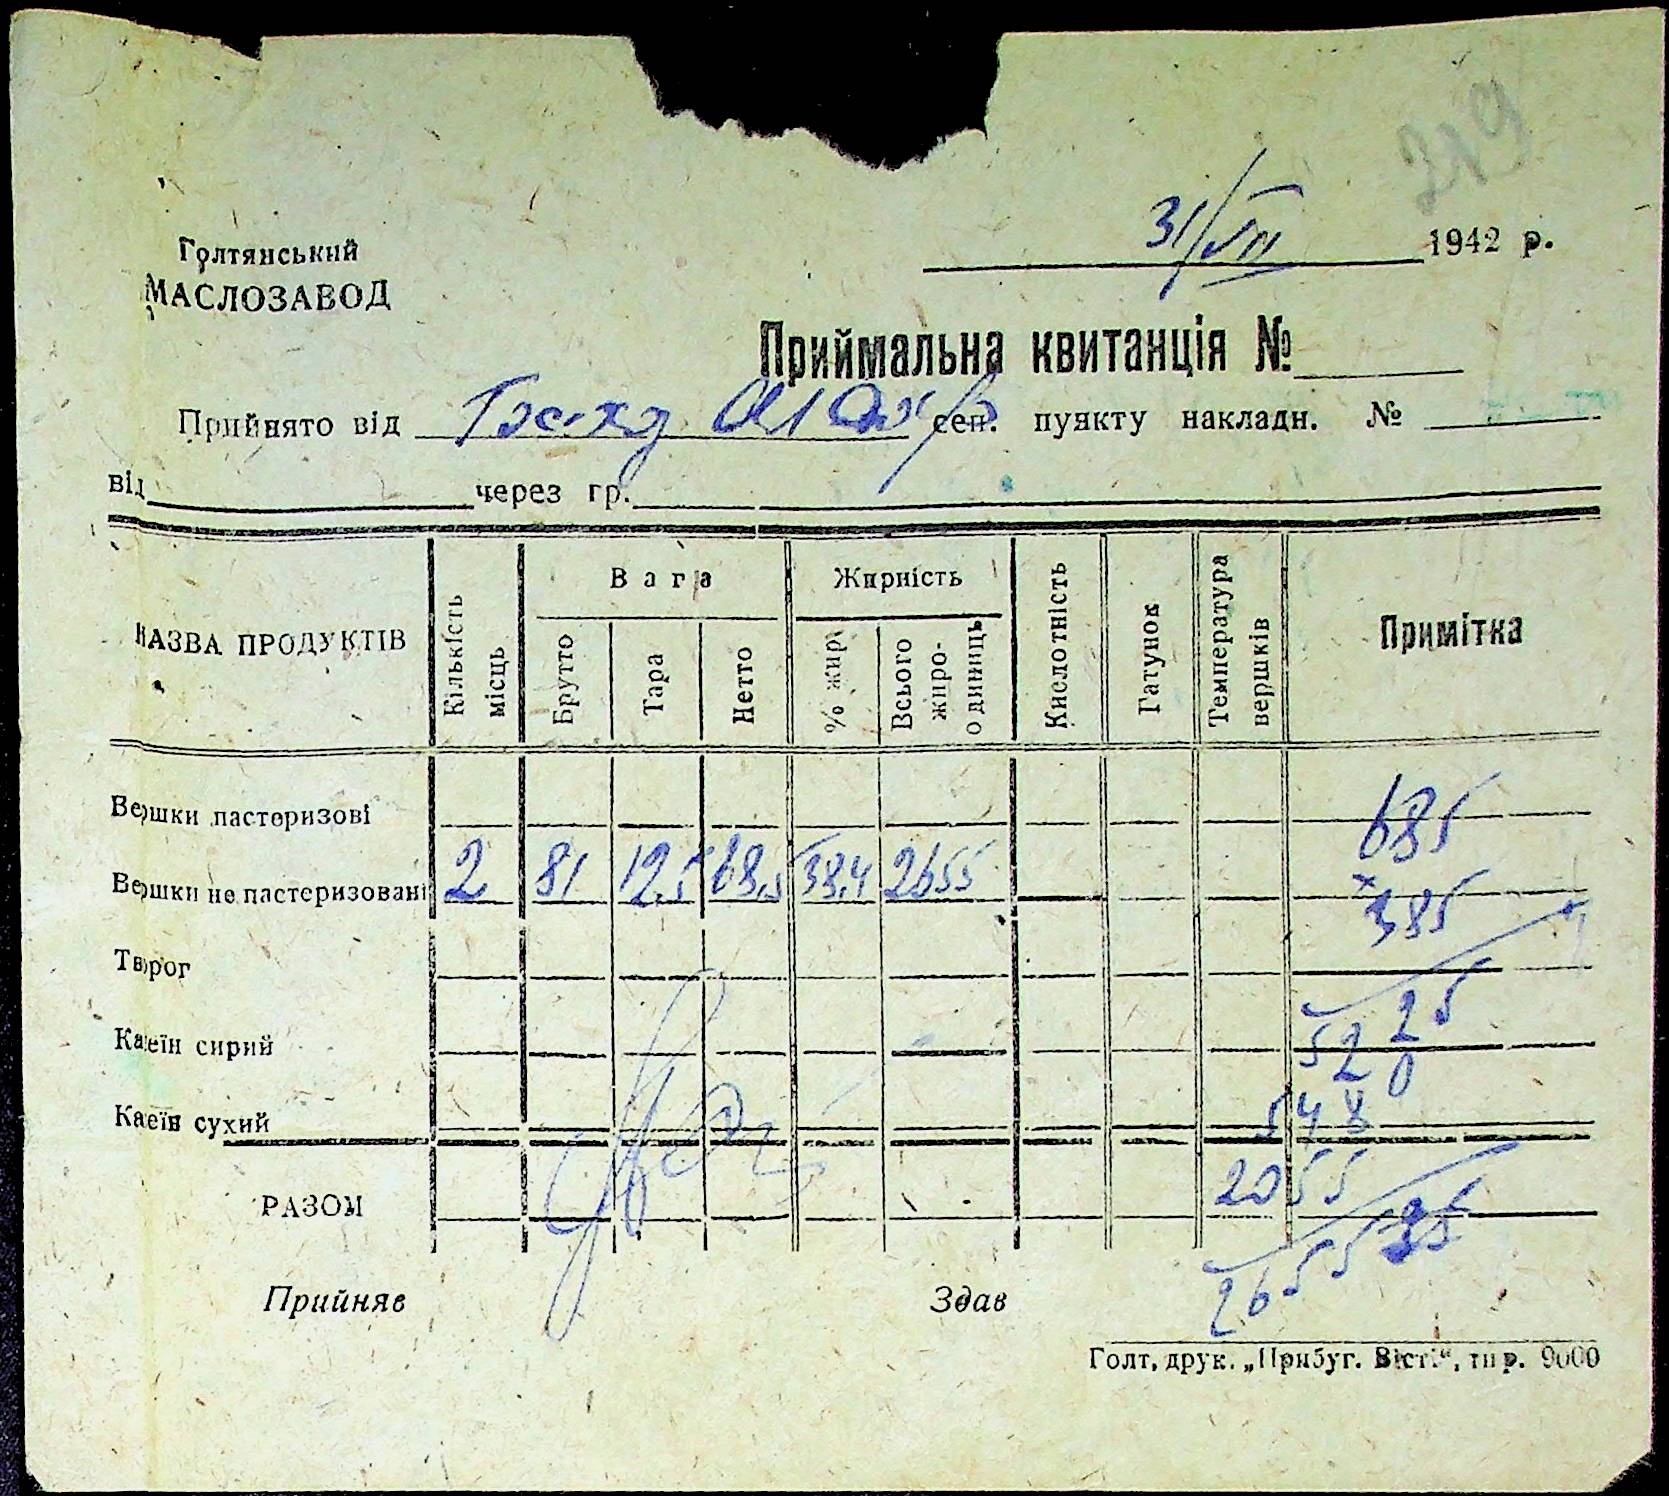 219
31/VII 1942 р.
Голтянський
МАСЛОЗАВОД
Приймальна квитанція №
Прийнято від сеп. пункту накладн. №
від через гр.
НАЗВА ПРОДУКТІВ Кількість місць Вага Брутто Тара Нетто Жирність % жиру Всього жиро-одиниць Кислотність Гатунок Температура вершків Примітка
Вершки пастеризові 685
Вершки не пастеризовані 2 81 12,5 68,5 38,4 2655 × 385
Творог
Казеїн сирий
Казеїн сухий 548
РАЗОМ 2055
Прийняв Здав
Голт. друк. „Прибуг. Вісті“, тир. 9000